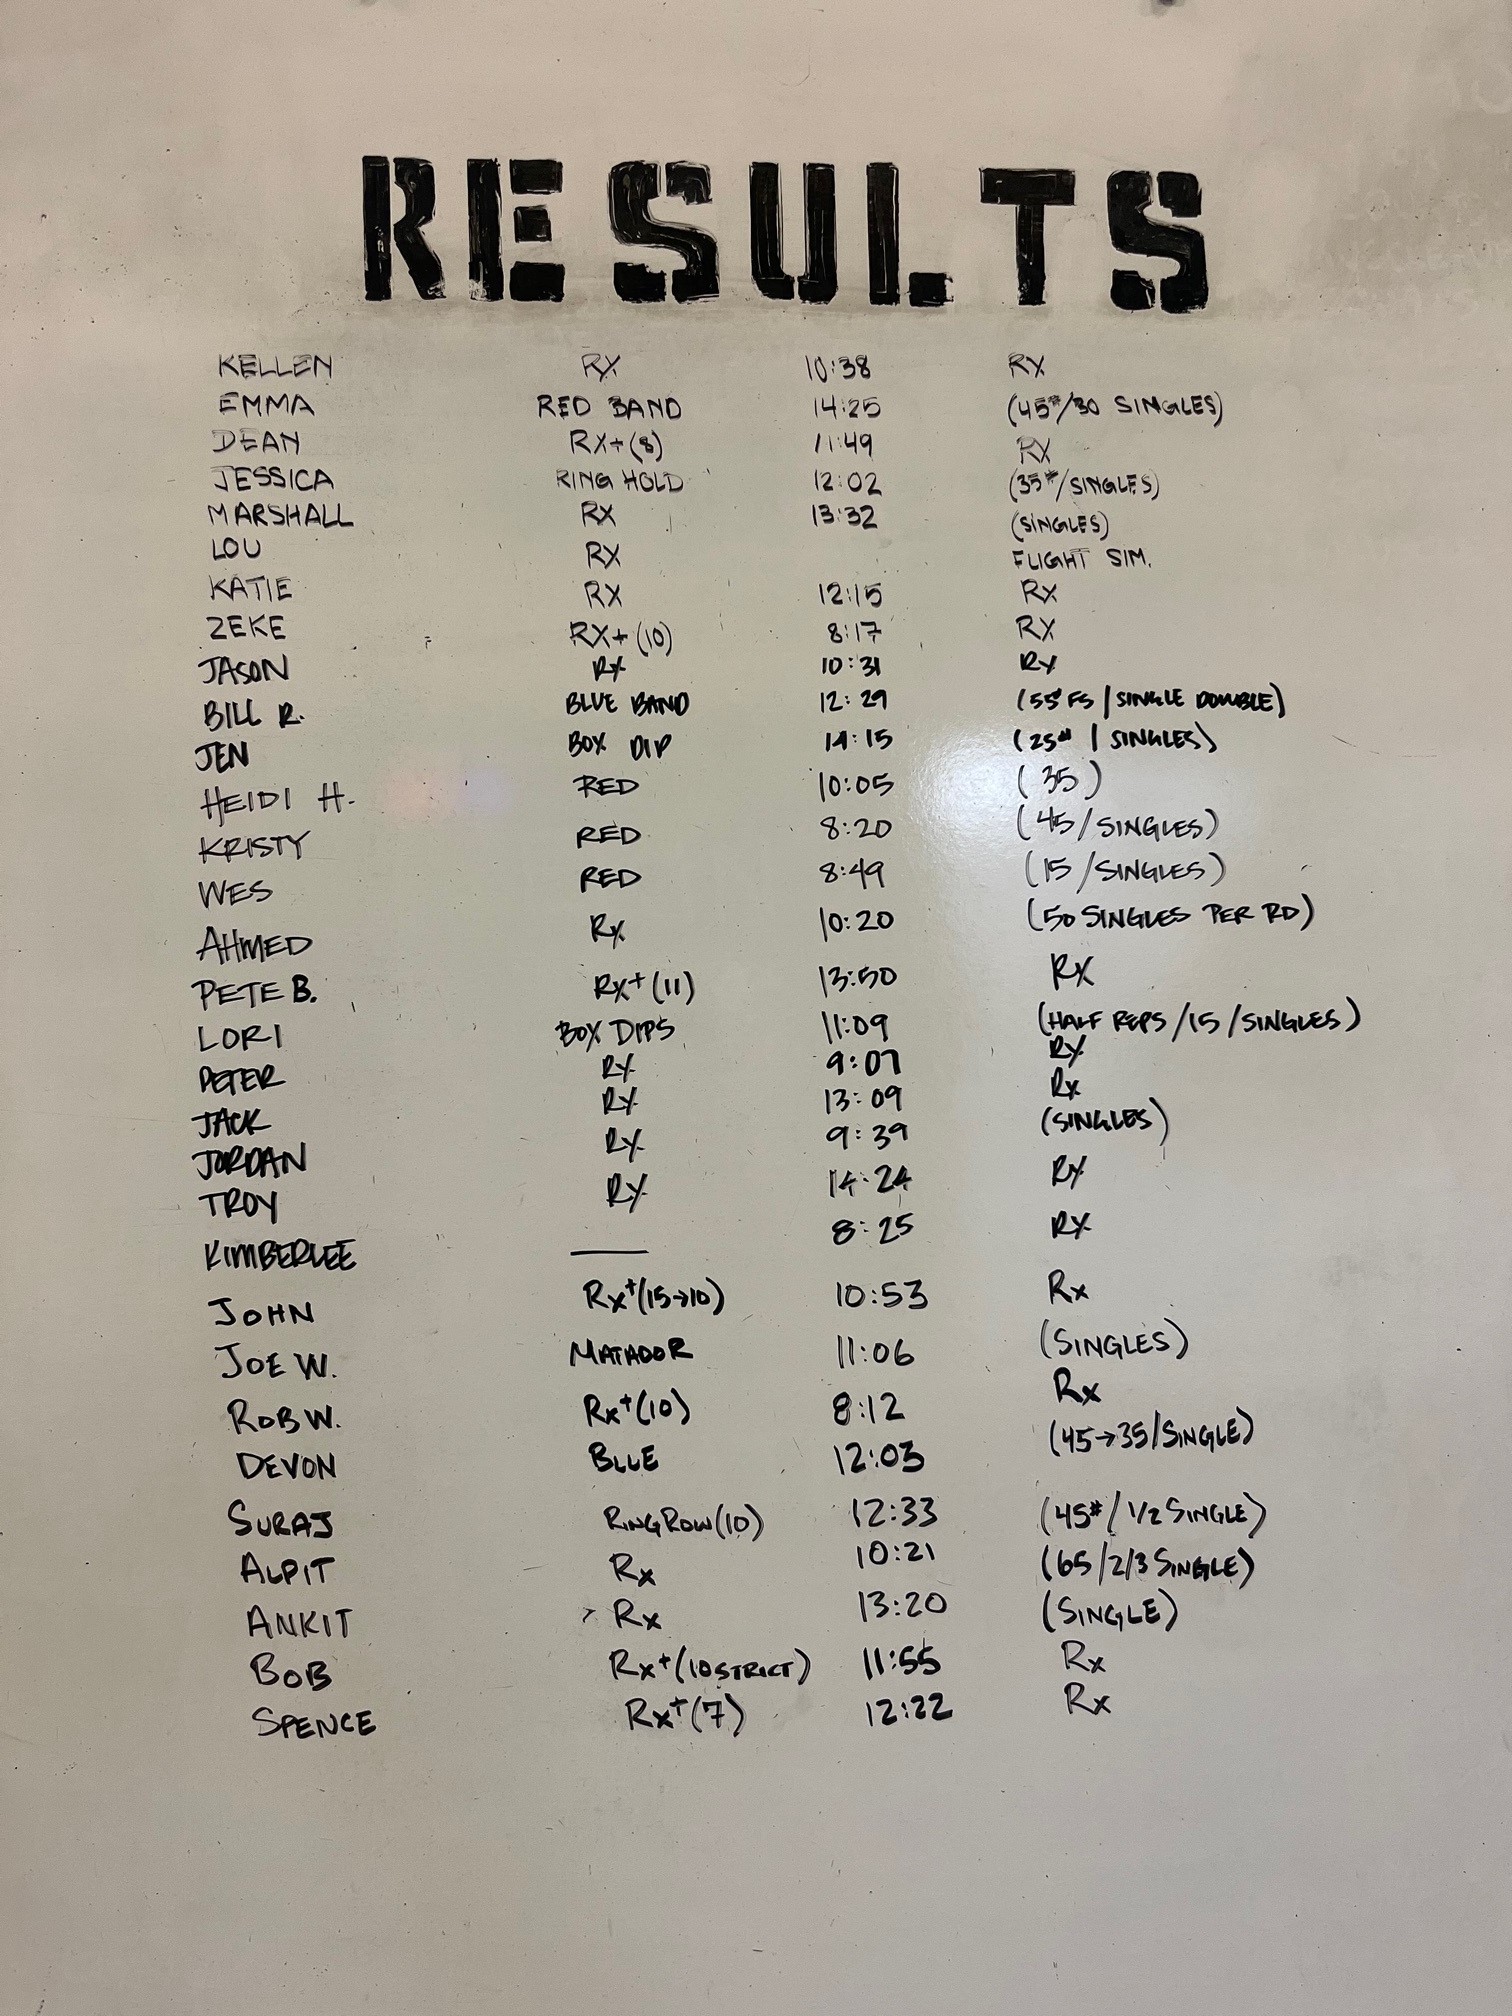 RESULTS
KELLEN RX 10:38 RX
EMMA RED BAND 14:25 (45#/30 SINGLES)
DEAN RX+(8) 11:49 RX
JESSICA RING HOLD 12:02 (35#/SINGLES)
MARSHALL RX 13:32 (SINGLES)
LOU RX FLIGHT SIM.
KATIE RX 12:15 RX
ZEKE RX+(10) 8:17 RX
JASON RX 10:31 RX
BILL R. BLUE BAND 12:29 (55# FS / SINGLE DOUBLE)
JEN BOX DIP 14:15 (25# / SINGLES)
HEIDI H. RED 10:05 (35)
KRISTY RED 8:20 (45/SINGLES)
WES RED 8:49 (15/SINGLES)
AHMED RX 10:20 (50 SINGLES PER RD)
PETE B. RX+(11) 13:50 RX
LORI BOX DIPS 11:09 (HALF REPS/15/SINGLES)
PETER RX 9:07 RX
JACK RX 13:09 RX
JORDAN RX 9:39 (SINGLES)
TROY RX 14:24 RX
KIMBERLEE — 8:25 RX
JOHN RX+(15→10) 10:53 RX
JOE W. MATADOR 11:06 (SINGLES)
ROB W. RX+(10) 8:12 RX
DEVON BLUE 12:03 (45→35/SINGLE)
SURAJ RING ROW(10) 12:33 (45#/1/2 SINGLE)
ALPIT RX 10:21 (65/2/3 SINGLE)
ANKIT RX 13:20 (SINGLE)
BOB RX+(10 STRICT) 11:55 RX
SPENCE RX+(7) 12:22 RX